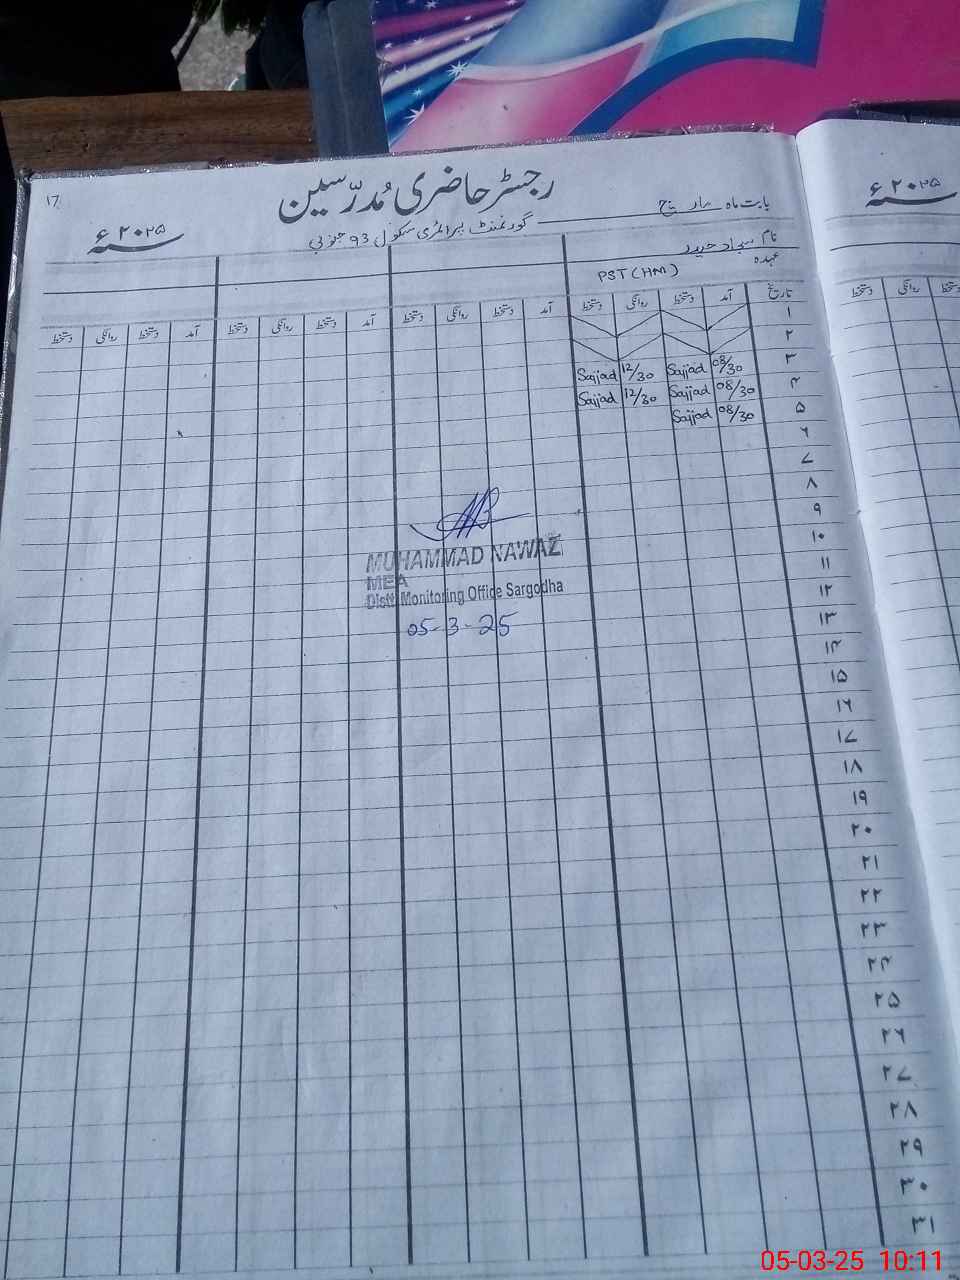 17
رجسٹر حاضری مُدرّسین
۲۰۲۵ء
۲۰۲۵ء
سنہ ۲۰۲۵ء
بابت ماہ مارچ
گورنمنٹ پرائمری سکول 93 جنوبی
نام سجاد حیدر
عہدہ PST (HM)
تاریخ آمد دستخط روانگی دستخط آمد دستخط روانگی دستخط آمد دستخط روانگی دستخط آمد دستخط روانگی دستخط
دستخط روانگی دستخط
۱
۲
۳ 08/30 Sajjad 12/30 Sajjad
۴ 08/30 Sajjad 12/30 Sajjad
۵ 08/30 Sajjad
۶
۷
۸
۹
۱۰
۱۱
۱۲
۱۳
۱۴
۱۵
۱۶
۱۷
۱۸
۱۹
۲۰
۲۱
۲۲
۲۳
۲۴
۲۵
۲۶
۲۷
۲۸
۲۹
۳۰
۳۱
MUHAMMAD NAWAZ
MEA
Distt Monitoring Office Sargodha
05-3-25
05-03-25 10:11